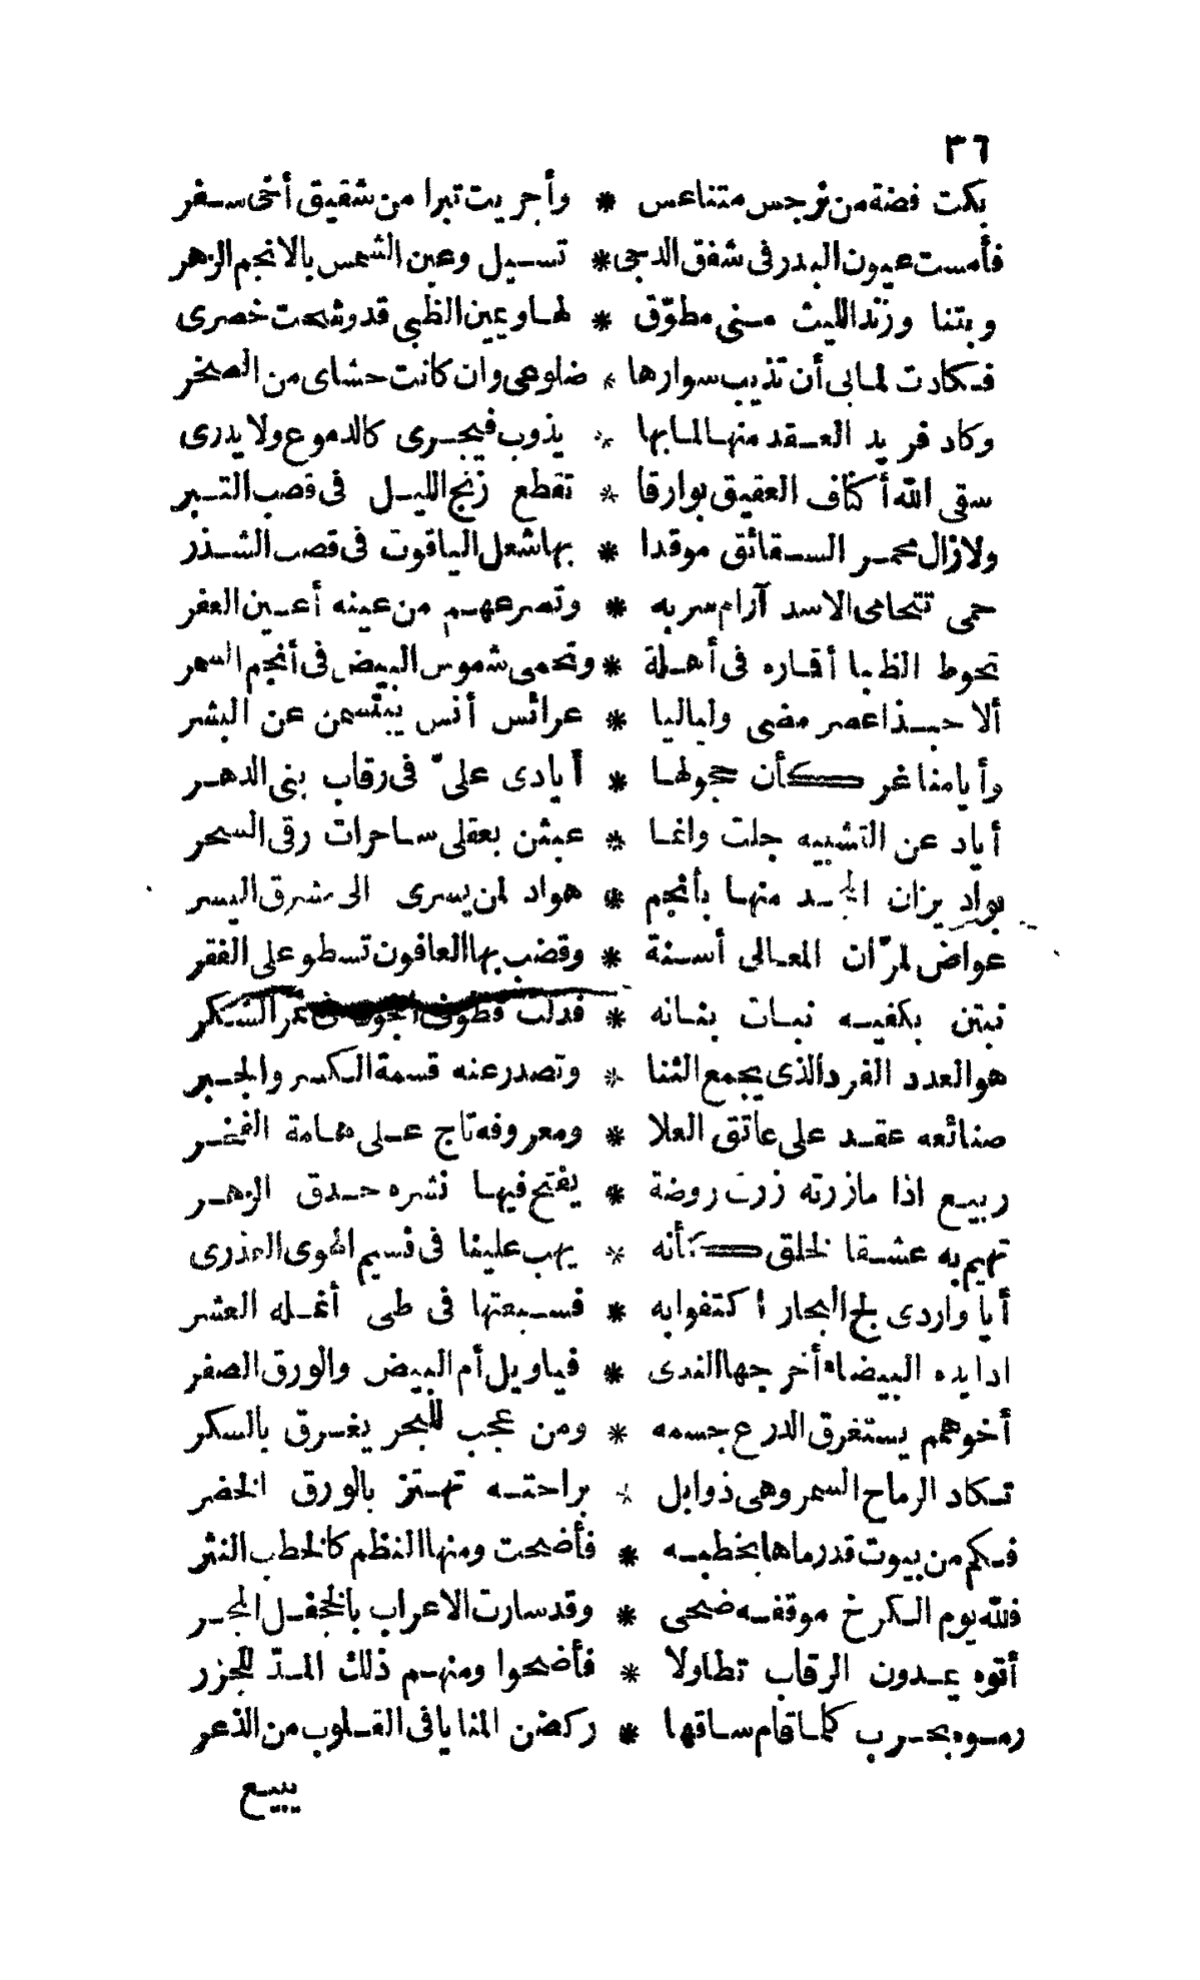 ٣٦
بكت فضة من نرجس متناعس * وأجريت تبرا من شقيق أخى سفر
فأمست عيون البدر فى شفق الدجى * تسيل وعين الشمس بالانجم الزهر
وبتنا وزند الليث منى مطوّق * لها وبعين الظبى قد وشحت خصرى
فكادت لمابى أن تذيب سوارها * ضلوعى وان كانت حشاى من الصخر
وكاد فريد العقد منها لما بها * يذوب فيجرى كالدموع ولا يدرى
سقى الله أكناف العقيق بوارقا * تقطع زنج الليل فى قصب التبر
ولا زال محمر الشقائق موقدا * بها شعل الياقوت فى قصب الشذر
حمى تتحامى الاسد آرام سربه * وتصرعهم من عينه أعين العفر
تحوط الظبا أقماره فى أهلة * وتحمى شموس البيض فى أنجم السمر
ألا حبذا عصر مضى ولياليا * عرائس أنس يبتسمن عن البشر
وأيامنا غر كأن حجولها * أيادى علىّ فى رقاب بنى الدهر
أياد عن التشبيه جلت وانما * عبثن بعقلى ساحرات رقى السحر
بواد يزان المجد منها بأنجم * هواد لمن يسرى الى مشرق اليسر
عواض لمرّان المعالى أسنة * وقضب بها العافون تسطو على الفقر
نبتن بكفيه نبات بنانه * فدلت قطوف الجود فى ثمر الشكر
هو العدد الفرد الذى يجمع الثنا * وتصدر عنه قسمة الكسر والجبر
صنائعه عقد على عاتق العلا * ومعروفه تاج على هامة الفخر
ربيع اذا ما زرته زرت روضة * يفتح فيها نشره حدق الزهر
تهيم به عشقا لخلق كأنه * يهب علينا فى نسيم الهوى العذرى
أيا واردى لج البحار اكتفوا به * فسبعتها فى طى أنمله العشر
اذا يده البيضاء أخرجها الندى * فيا ويل أم البيض والورق الصفر
أخو همم يستغرق الدرع جسمه * ومن عجب للبحر يغرق بالسكر
تكاد الرماح السمر وهى ذوابل * براحته تهتز بالورق الخضر
فكم من بيوت قد رماها بخطبه * فأضحت ومنها النظم كالخطب النثر
فلله يوم الكرخ موقفه ضحى * وقد سارت الاعراب بالجحفل المجر
أتوه يمدون الرقاب تطاولا * فأضحوا ومنهم ذلك المدّ للجزر
رموه بحرب كلما قام ساقها * ركضن المنايا فى القلوب من الذعر
يبيع